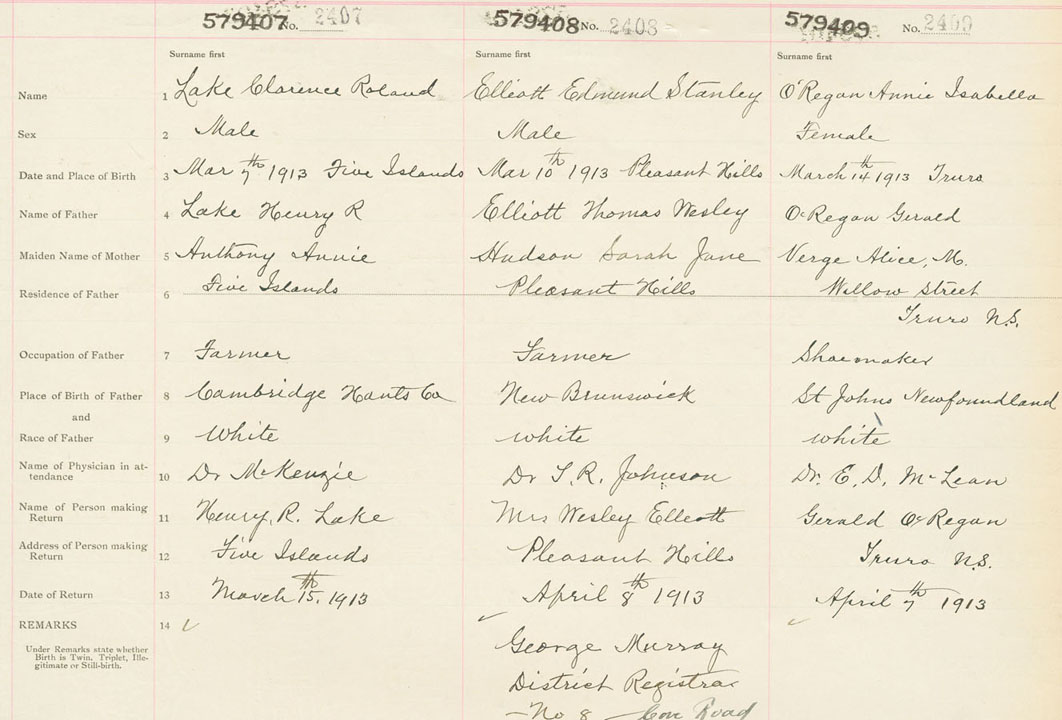 579407 No. 2407 579408 No. 2408 579409 No. 2409
Surname first Surname first Surname first
Name 1 Lake Clarence Roland Elliott Edmund Stanley O'Regan Annie Isabella
Sex 2 Male Male Female
Date and Place of Birth 3 Mar 7th 1913 Five Islands Mar 10th 1913 Pleasant Hills March 14th 1913 Truro
Name of Father 4 Lake Henry R Elliott Thomas Wesley O'Regan Gerald
Maiden Name of Mother 5 Anthony Annie Hudson Sarah Jane Verge Alice, M.
Residence of Father 6 Five Islands Pleasant Hills Willow Street
Truro N.S.
Occupation of Father 7 Farmer Farmer Shoemaker
Place of Birth of Father 8 Cambridge Hants Co New Brunswick St Johns Newfoundland
and
Race of Father 9 White white white
Name of Physician in at-
tendance 10 Dr McKenzie Dr T.R. Johnson Dr. E. D. McLean
Name of Person making
Return 11 Henry, R. Lake Mrs Wesley Elliott Gerald O'Regan
Address of Person making
Return 12 Five Islands Pleasant Hills Truro N.S.
Date of Return 13 March 15th, 1913 April 8th 1913 April 7th 1913
REMARKS 14
Under Remarks state whether
Birth is Twin, Triplet, Ille-
gitimate or Still-birth.
George Murray
District Registrar
No 8 Road